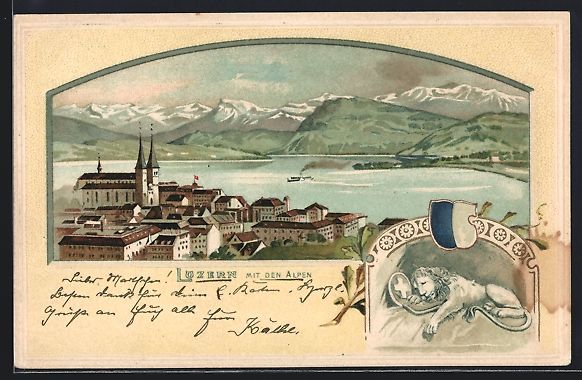 LUZERN MIT DEN ALPEN
Lieber
Besten Dank für Deine l. Karten.
Gruß an Euch alle
Käthe.